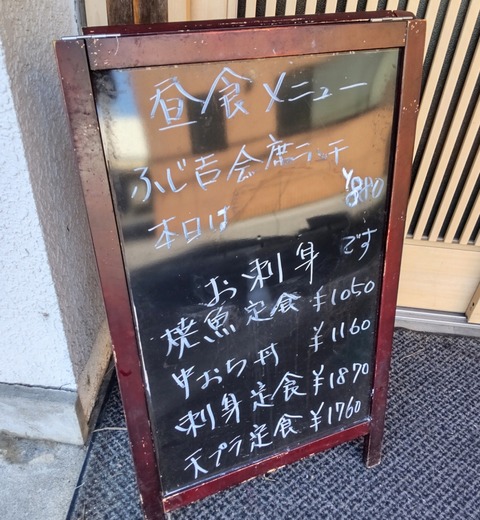 昼食メニュー
ふじ吉会席ランチ
本日は
お刺身です
焼魚定食 ¥1050
中おち丼 ¥1160
刺身定食 ¥1870
天プラ定食 ¥1760